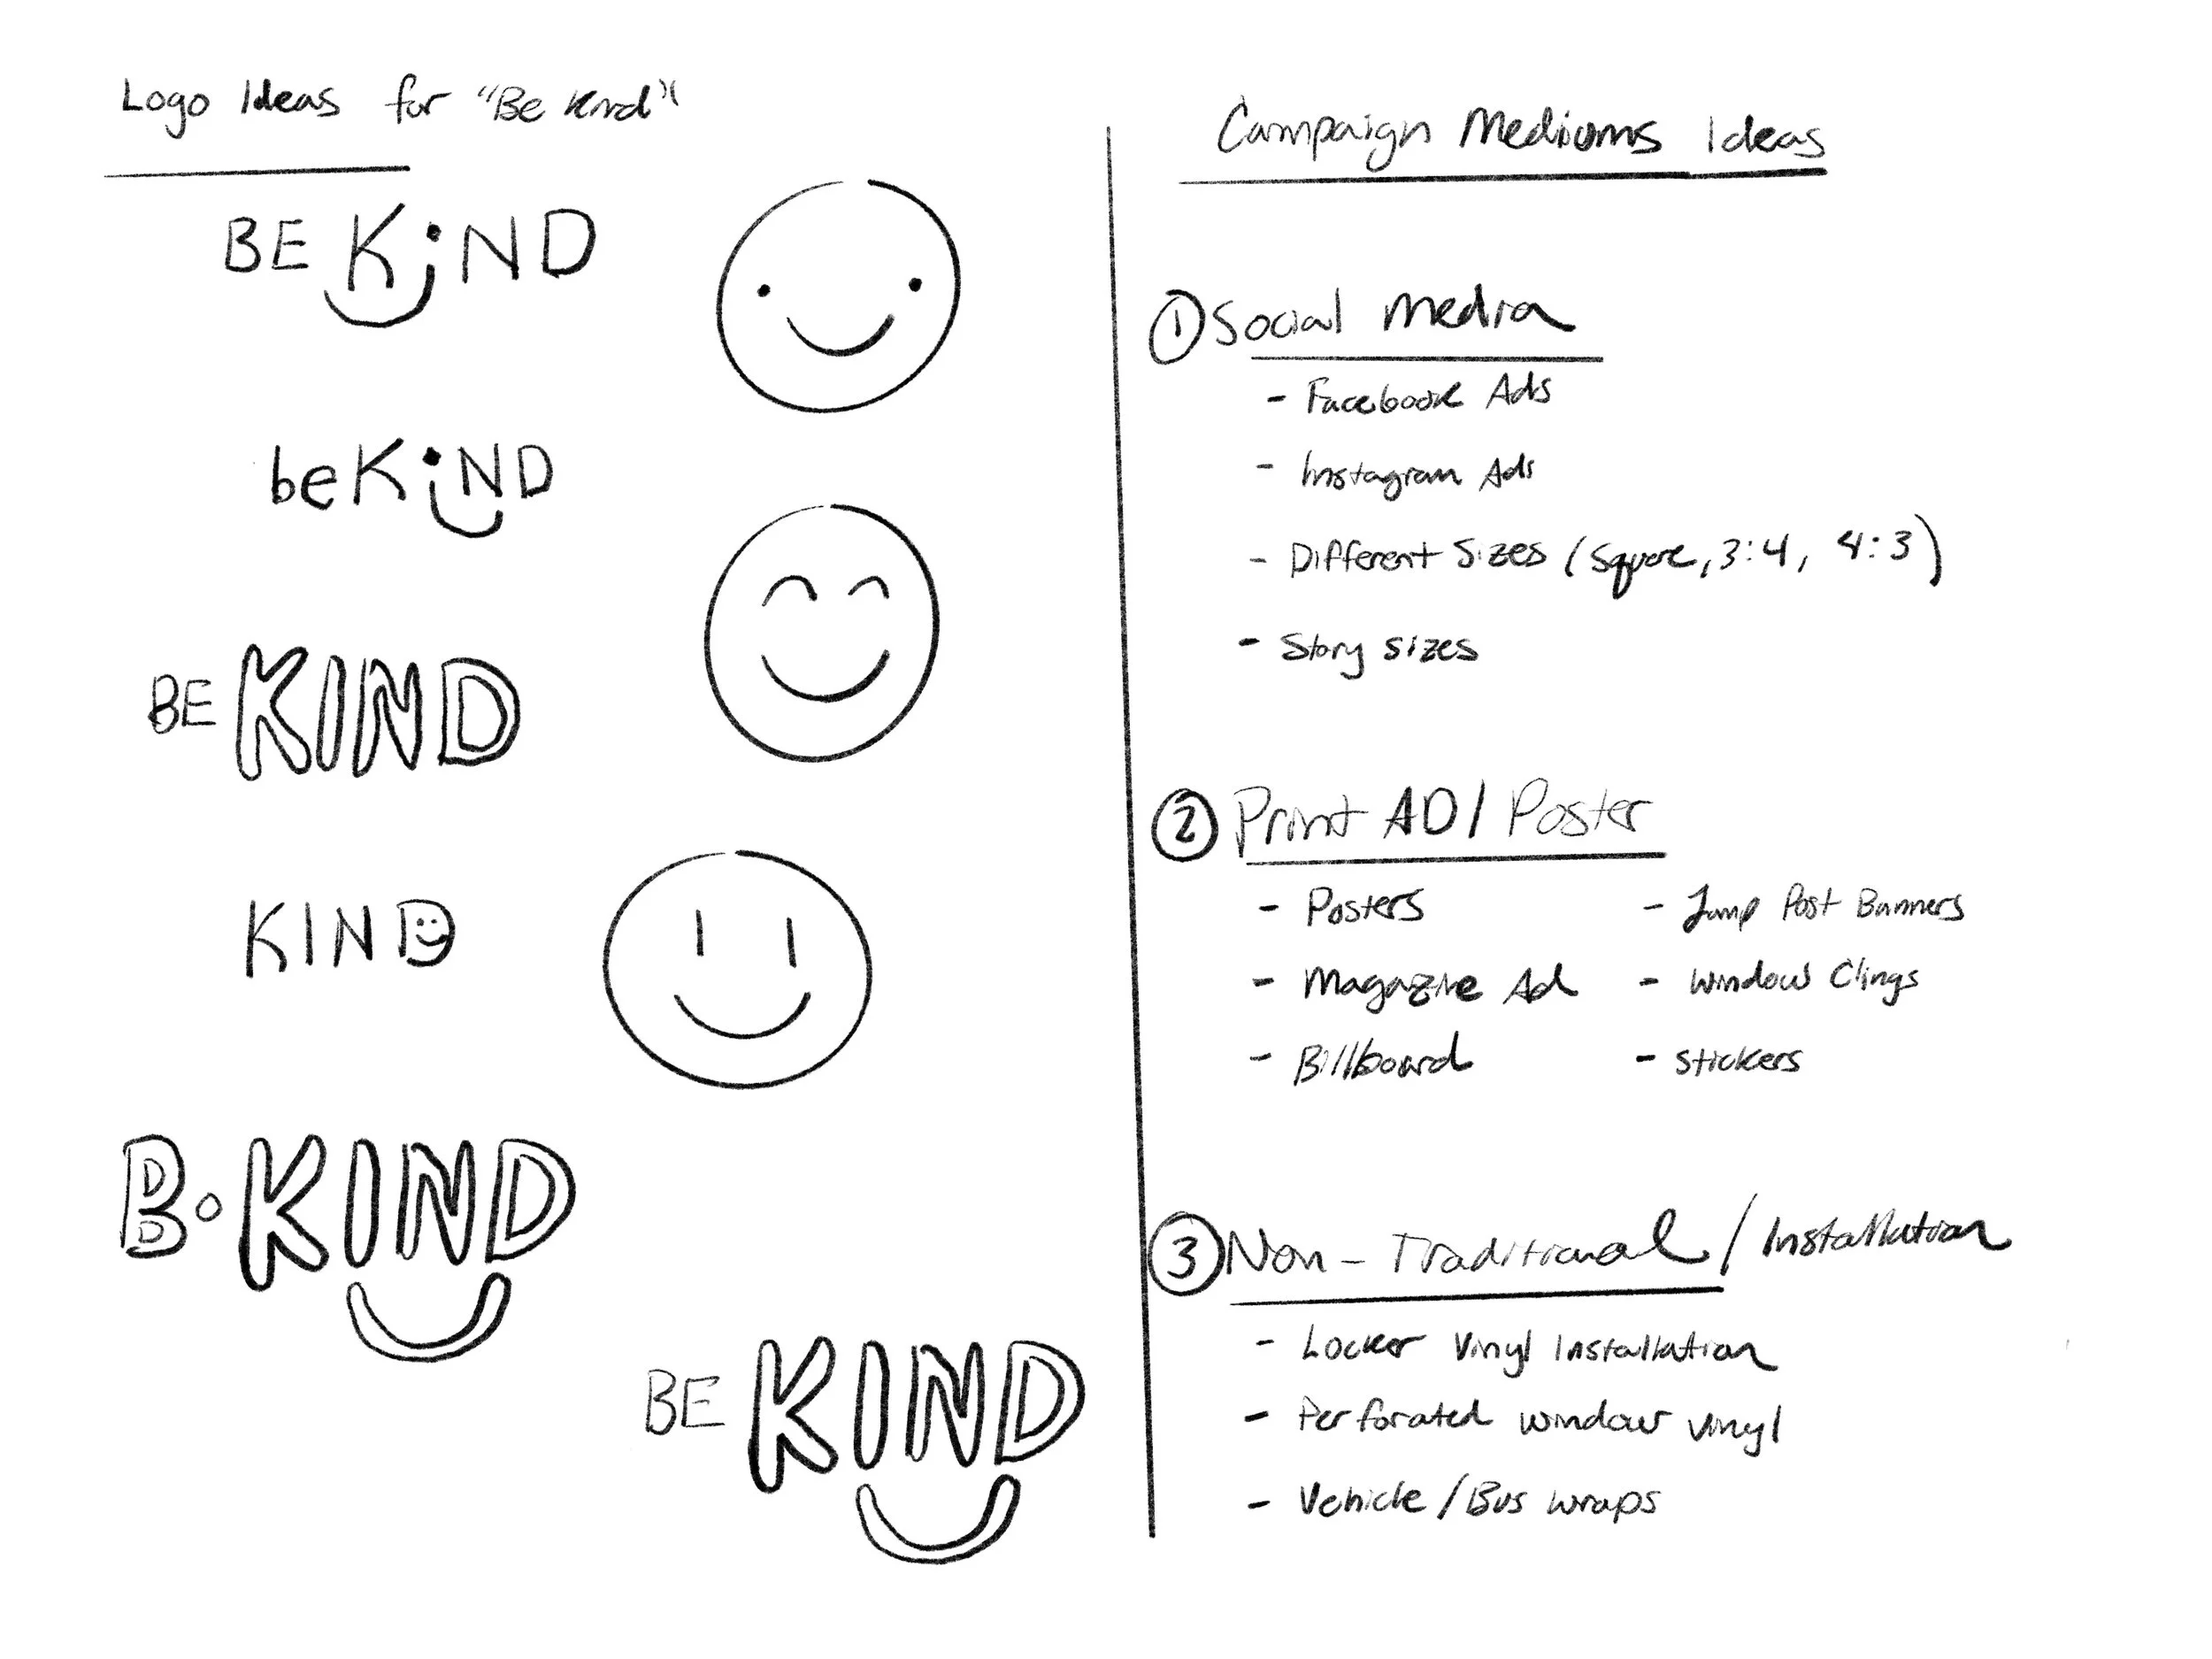 Logo Ideas for "Be Kind"
BE KiND
beKiND
BE KIND
KIND
B•KIND
BE KIND
Campaign Mediums Ideas
① Social Media
- Facebook Ads
- Instagram Ads
- Different Sizes (Square, 3:4, 4:3)
- Story sizes
② Print AD / Poster
- Posters
- Magazine Ad
- Billboard
- Lamp Post Banners
- Window Clings
- Stickers
③ Non-Traditional / Installation
- Locker Vinyl Installation
- Perforated window vinyl
- Vehicle / Bus wraps